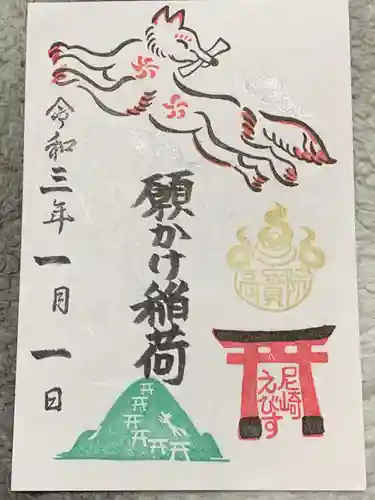 願かけ稲荷
令和三年一月一日
高寳院
尼崎
えびす